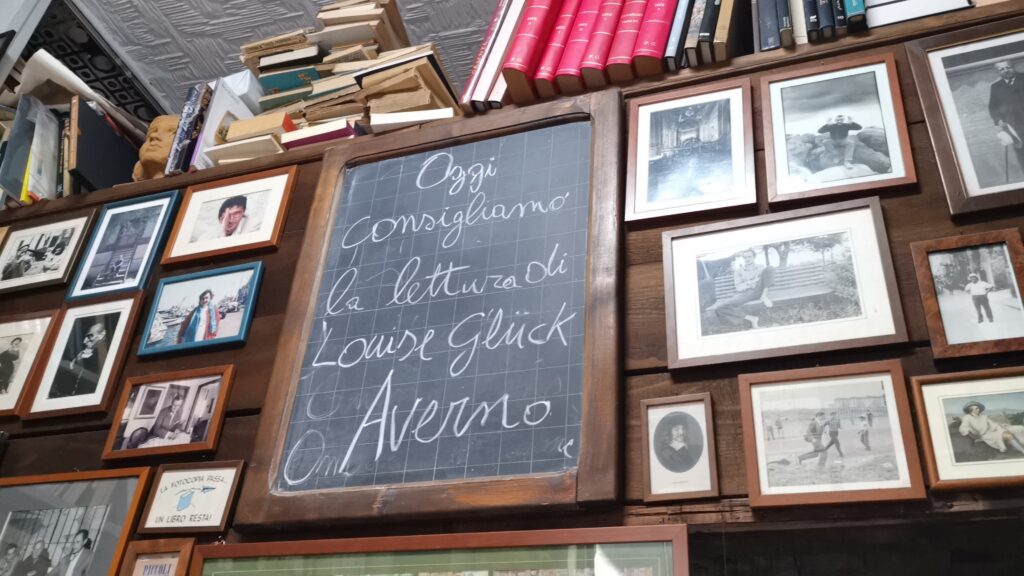 Oggi
consigliamo
la lettura di
Louise Glück
Averno
LA FOTOCOPIA PASSA...
UN LIBRO RESTA!
PICCOLI